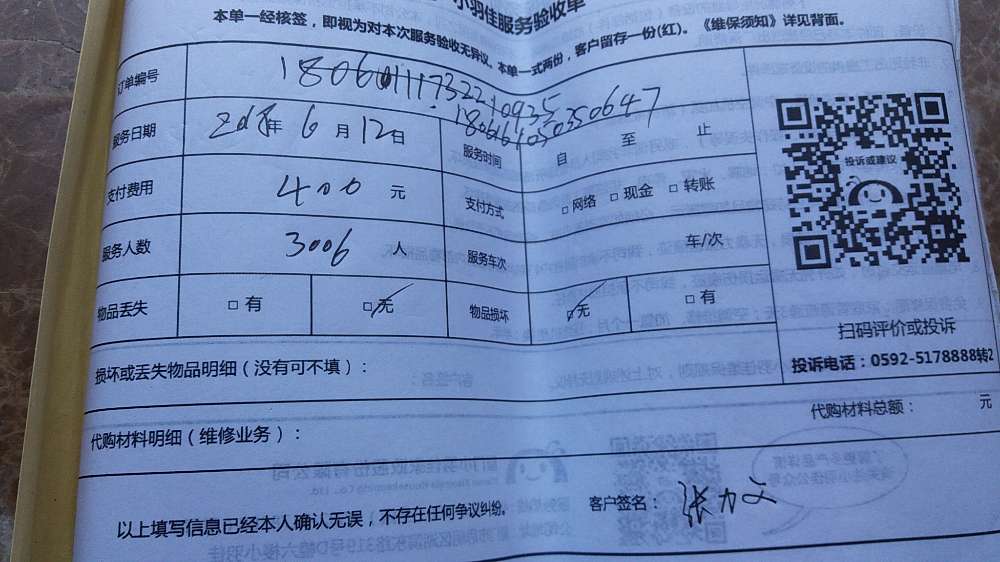 小羽佳服务验收单
本单一经核签，即视为对本次服务验收无异议。本单一式两份，客户留存一份(红)。《维保须知》详见背面。
订单编号 18060111732210935
1806161050350647
服务日期 2018年 6 月 12 日 服务时间 自 至 止
支付费用 400 元 支付方式 □ 网络 □ 现金 □ 转账
服务人数 3006 人 服务车次 车/次
物品丢失 □ 有 □ 无 物品损坏 □ 无 □ 有
投诉或建议
扫码评价或投诉
投诉电话：0592-5178888转2
损坏或丢失物品明细（没有可不填）：
代购材料总额： 元
代购材料明细（维修业务）：
以上填写信息已经本人确认无误，不存在任何争议纠纷。
客户签名： 张力文